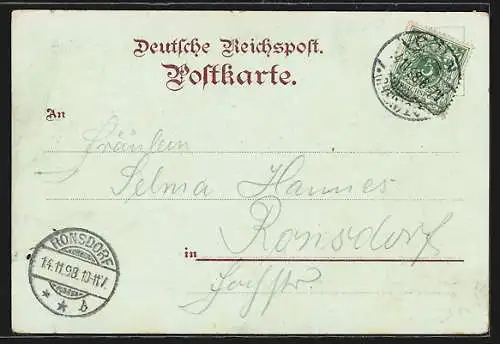 Deutsche Reichspost.
Postkarte.
An
Fräulein
Selma Hannes
Ronsdorf
in
Hochstr.
RONSDORF
14.11.98.10-11V.
* * b